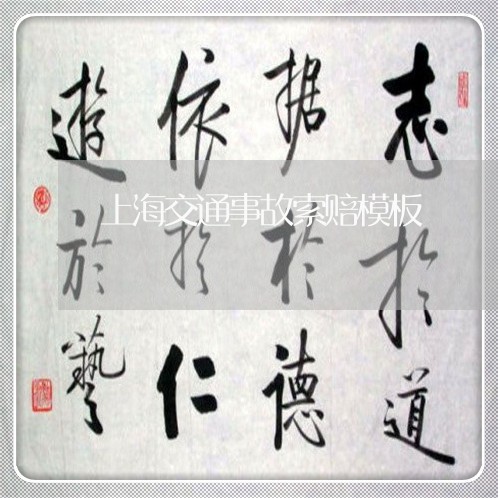 志於道
据於德
依於仁
遊於藝
上海交通事故索赔模板